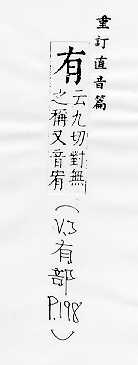 重訂直音篇
有
云九切對無
之稱又音宥
(V.3有部P.198)